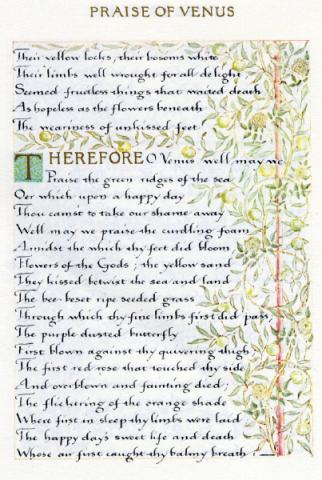 PRAISE OF VENUS
Their yellow locks, their bosoms white
Their limbs well wrought for all delight
Seemed fruitless things that waited death
As hopeless as the flowers beneath
The weariness of unkissed feet
THEREFORE O Venus well may we
Praise the green ridges of the sea
Oer which upon a happy day
Thou camst to take our shame away
Well may we praise the curdling foam
Amidst the which thy feet did bloom
Flowers of the Gods; the yellow sand
They kissed betwixt the sea and land
The bee-beset ripe seeded grass
Through which thy fine limbs first did pass
The purple dusted butterfly
First blown against thy quivering thigh
The first red rose that touched thy side
And overblown and fainting died;
The flickering of the orange shade
Where first in sleep thy limbs were laid
The happy day's sweet life and death
Whose air first caught thy balmy breath :—